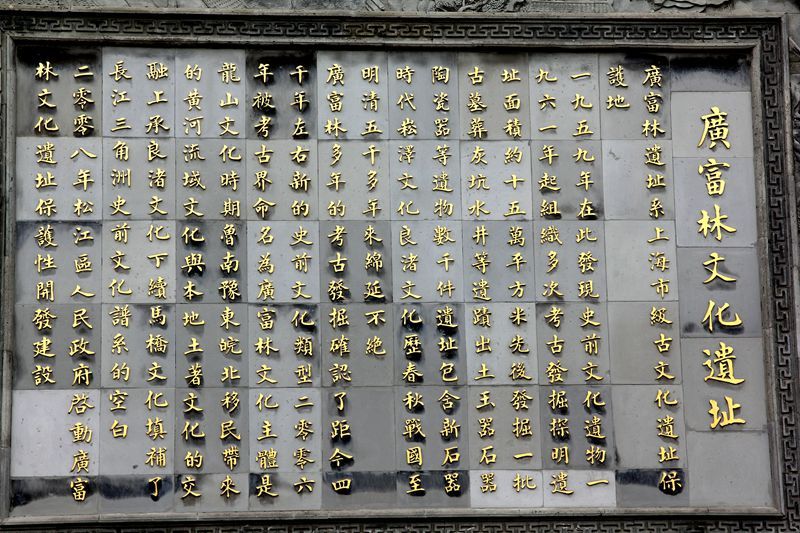 廣富林文化遺址
廣富林遺址系上海市級古文化遺址保
護地
一九五九年在此發現史前文化遺物一
九六一年起組織多次考古發掘探明遺
址面積約十五萬平方米先後發掘一批
古墓葬灰坑水井等遺蹟出土玉器石器
陶瓷器等遺物數千件遺址包含新石器
時代崧澤文化良渚文化歷春秋戰國至
明清五千多年來綿延不絕
廣富林多年的考古發掘確認了距今四
千年左右新的史前文化類型二零零六
年被考古界命名為廣富林文化主體是
龍山文化時期魯南豫東皖北移民帶來
的黃河流域文化與本地土著文化的交
融上承良渚文化下續馬橋文化填補了
長江三角洲史前文化譜系的空白
二零零八年松江區人民政府啓動廣富
林文化遺址保護性開發建設